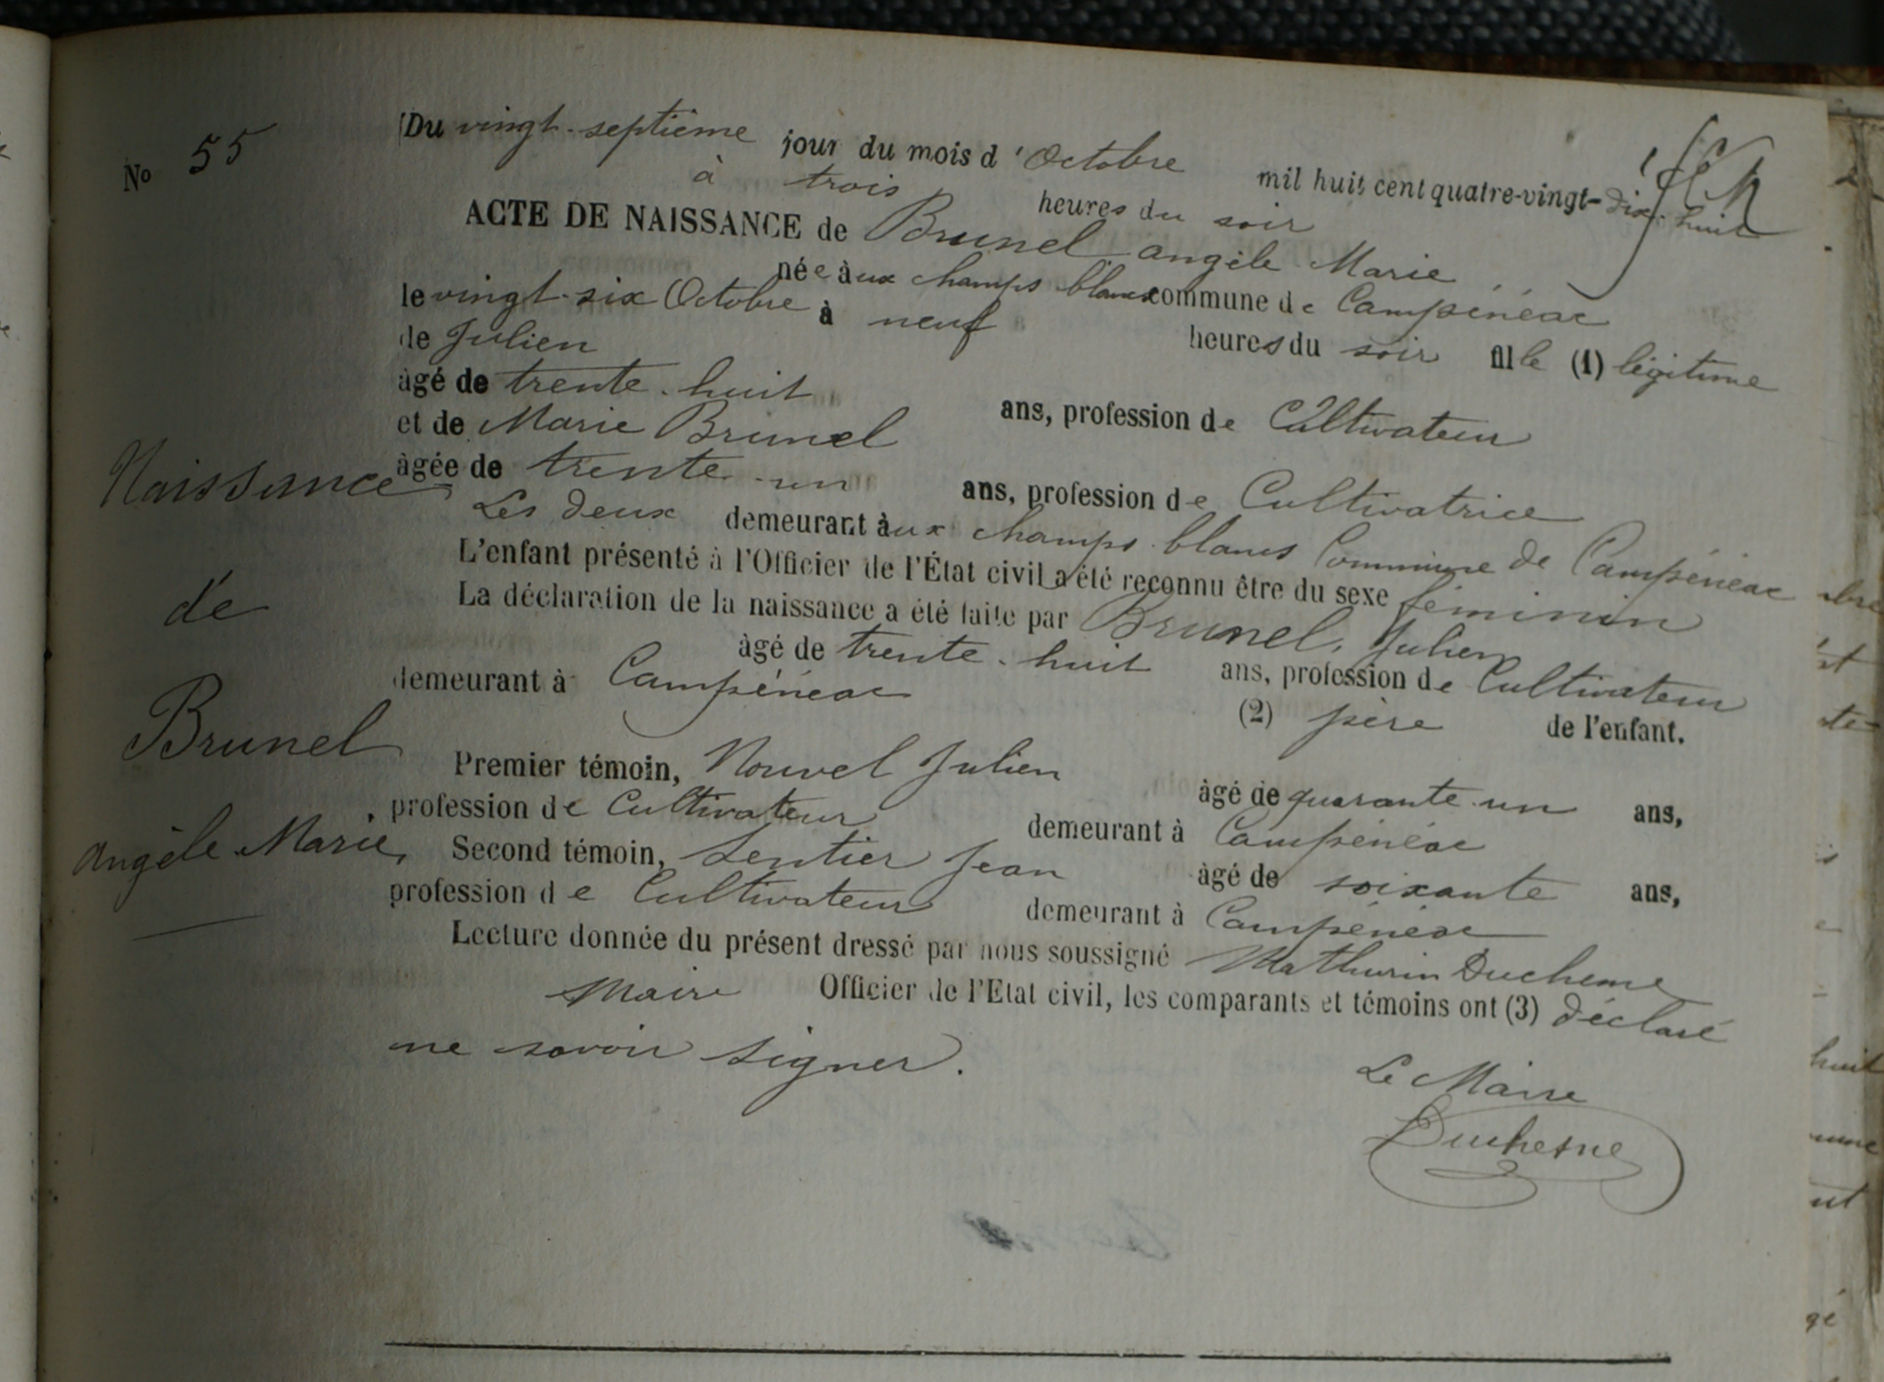 No 55
Naissance
de
Brunel
angèle Marie
Du vingt-septième jour du mois d'Octobre mil huit cent quatre-vingt-dix-huit
à trois heures du soir
ACTE DE NAISSANCE de Brunel angèle Marie
née àux champs blancs commune de Campénéac
le vingt-six Octobre à neuf heures du soir fille (1) légitime
de Julien
âgé de trente-huit ans, profession de Cultivateur
et de Marie Brunel
âgée de trente-un ans, profession de Cultivatrice
Les deux demeurant àux champs blancs Commune de Campénéac
L'enfant présenté à l'Officier de l'État civil a été reconnu être du sexe féminin
La déclaration de la naissance a été faite par Brunel, Julien
âgé de trente-huit ans, profession de Cultivateur
demeurant à Campénéac (2) père de l'enfant.
Premier témoin, Nouvel Julien âgé de quarante-un ans,
profession de Cultivateur demeurant à Campénéac
Second témoin, Sentier Jean âgé de soixante ans,
profession de Cultivateur demeurant à Campénéac
Lecture donnée du présent dressé par nous soussigné Mathurin Duchesne
Maire Officier de l'Etat civil, les comparants et témoins ont (3) déclaré
ne savoir signer.
Le Maire
Duchesne